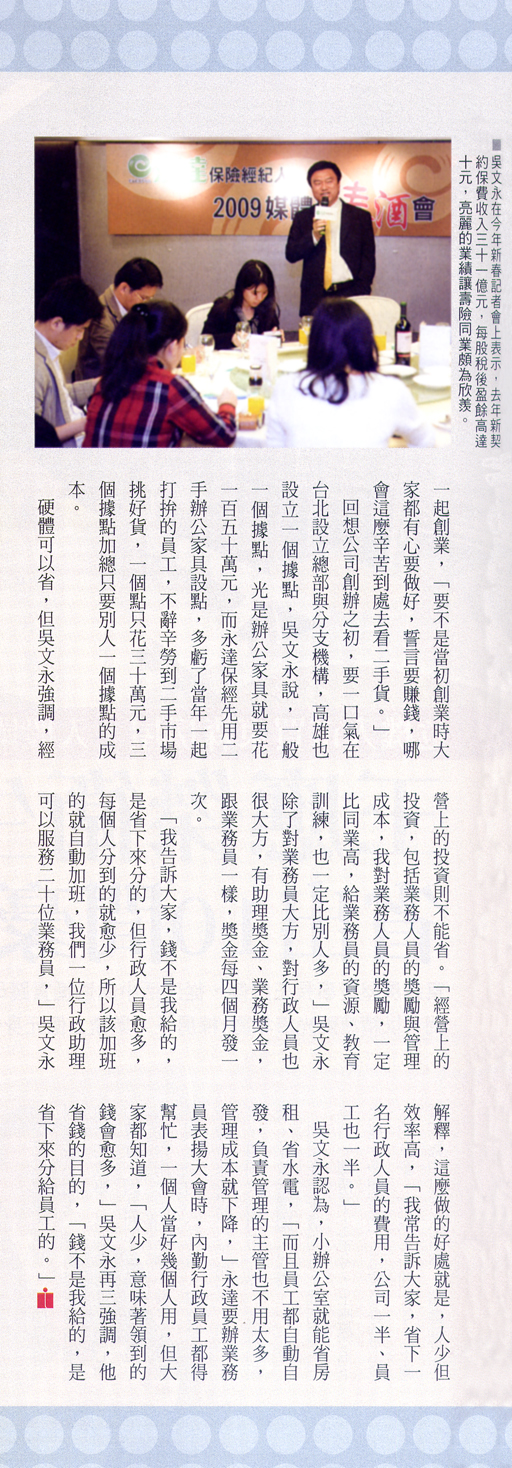 ■吳文永在今年新春記者會上表示，去年新契
約保費收入三十一億元，每股稅後盈餘高達
十元，亮麗的業績讓壽險同業頗為欣羨。
保險經紀人
2009媒體 酒會
一起創業，「要不是當初創業時大
家都有心要做好，誓言要賺錢，哪
會這麼辛苦到處去看二手貨。」
回想公司創辦之初，要一口氣在
台北設立總部與分支機構，高雄也
設立一個據點，吳文永說，一般
一個據點，光是辦公家具就要花
一百五十萬元，而永達保經先用二
手辦公家具設點，多虧了當年一起
打拚的員工，不辭辛勞到二手市場
挑好貨，一個點只花三十萬元，三
個據點加總只要別人一個據點的成
本。
硬體可以省，但吳文永強調，經
營上的投資則不能省。「經營上的
投資，包括業務人員的獎勵與管理
成本，我對業務人員的獎勵，一定
比同業高，給業務員的資源、教育
訓練，也一定比別人多，」吳文永
除了對業務員大方，對行政人員也
很大方，有助理獎金、業務獎金，
跟業務員一樣，獎金每四個月發一
次。
「我告訴大家，錢不是我給的，
是省下來分的，但行政人員愈多，
每個人分到的就愈少，所以該加班
的就自動加班，我們一位行政助理
可以服務二十位業務員，」吳文永
解釋，這麼做的好處就是，人少但
效率高，「我常告訴大家，省下一
名行政人員的費用，公司一半、員
工也一半。」
吳文永認為，小辦公室就能省房
租、省水電，「而且員工都自動自
發，負責管理的主管也不用太多，
管理成本就下降，」永達要辦業務
員表揚大會時，內勤行政員工都得
幫忙，一個人當好幾個人用，但大
家都知道，「人少，意味著領到的
錢會愈多，」吳文永再三強調，他
省錢的目的，「錢不是我給的，是
省下來分給員工的。」